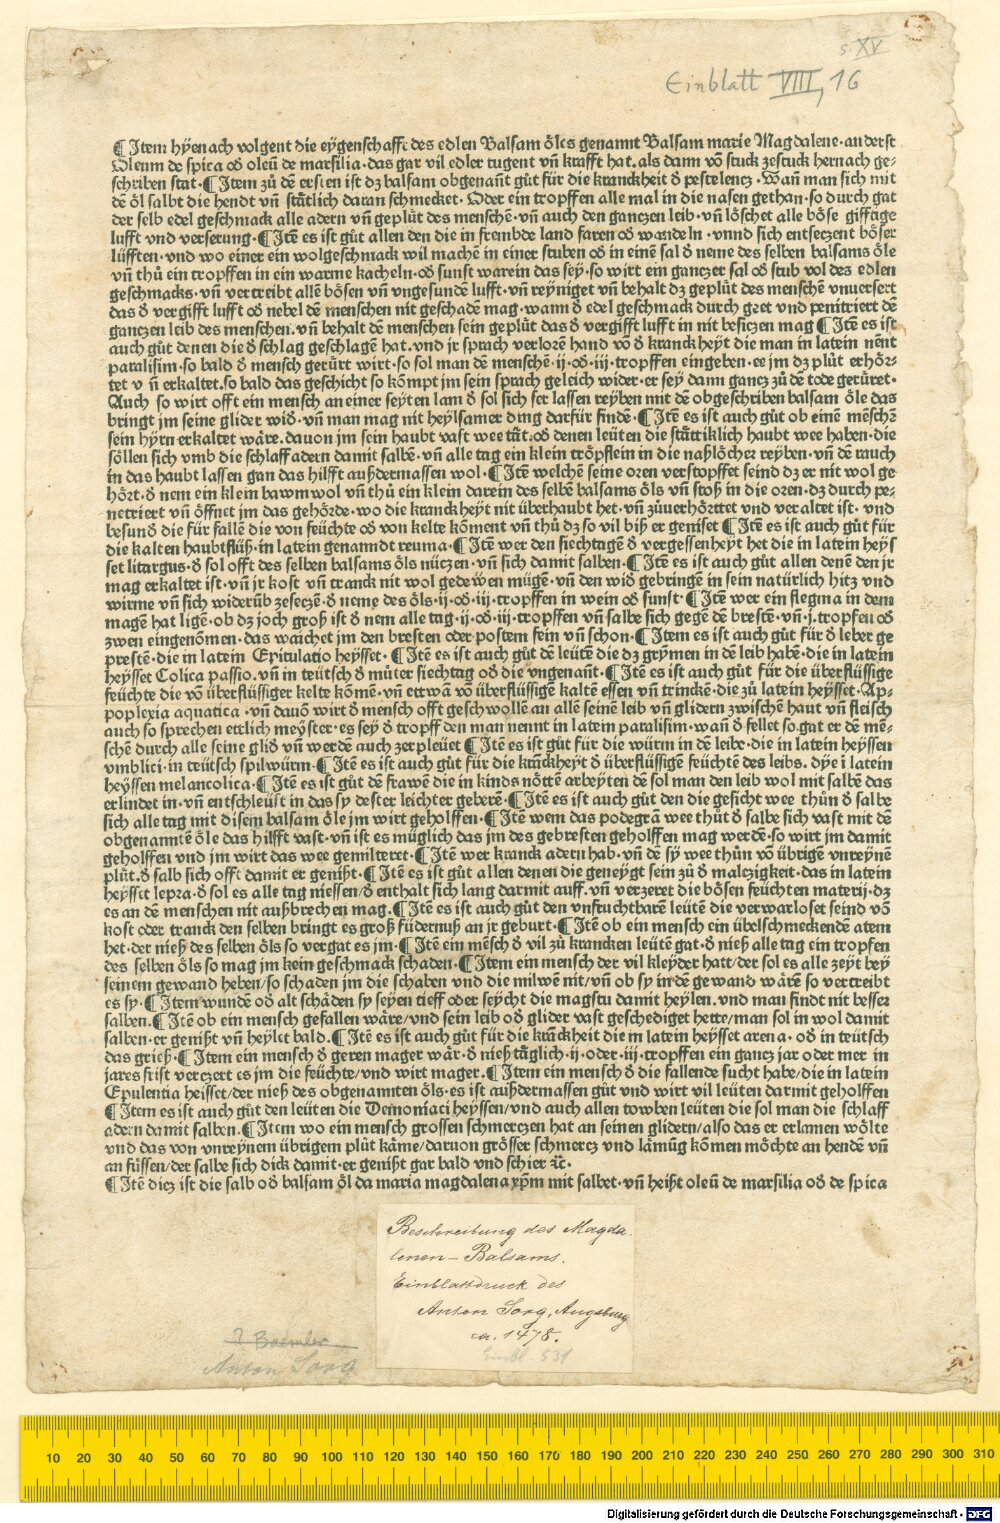 s. XV
Einblatt VIII, 16
¶ Item hÿenach volgent die eÿgenschafft des edlen Balsam öles genannt Balsam marie Magdalene · anderst
Oleum de spica oď oleū de marsilia · das gar vil edler tugent vñ krafft hat. als dann vō stuck zestuck hernach ge⸗
schriben stat · ¶ Item zů dē ersten ist dz balsam obgenañt gůt für die kranckheit ď pestelencz · Wañ man sich mit
dē öl salbt die hendt vñ stätlich daran schmecket · Oder ein tropffen alle mal in die nasen gethan · so durch gat
der selb edel geschmack alle adern vñ geplüt des menschē · vñ auch den ganczen leib · vñ löschet alle böse gifftige
lufft vnd verserung · ¶ Itē es ist gůt allen den die in frembde land faren oď wandeln · vnnd sich entseczent böser
lüfften · vnd wo einer ein wolgeschmack wil machē in einer stuben oď in einē sal ď neme des selben balsams öle
vñ thů ein tropffen in ein warme kacheln · oď sunst warein das seÿ · so wirt ein ganczer sal oď stub vol des edlen
geschmacks · vñ vertreibt allē bösen vñ vngesundē lufft · vñ reÿniget vñ behalt dz geplüt des menschē vnuersert
das ď vergifft lufft oď nebel dē menschen nit geschadē mag · wann ď edel geschmack durch geet vnd penitriert dē
ganczen leib des menschen. vñ behalt dē menschen sein geplüt das ď vergifft lufft in nit besiczen mag ¶ Itē es ist
auch gůt denen die ď schlag geschlagē hat. vnd jr sprach verlorē hand vō ď kranckheÿt die man in latein nēnt
paralisim · so bald ď mensch gerürt wirt · so sol man dē menschē · ij · oď · iij · tropffen eingeben · ee jm dz plůt erhör⸗
tet v ñ erkaltet. so bald das geschicht so kōmpt jm sein sprach geleich wider · er seÿ dann gancz zů dē tode gerüret ·
Auch so wirt offt ein mensch an einer seÿten lam ď sol sich ser lassen reÿben mit dē obgeschriben balsam öle das
bringt jm seine glider wiď · vñ man mag nit heÿlsamer ding darfür findē · ¶ Itē es ist auch gůt ob einē mēschē
sein hÿrn erkaltet wäre. dauon jm sein haubt vast wee tät. oď denen leüten die stättiklich haubt wee haben · die
söllen sich vmb die schlaff adern damit salbē · vñ alle tag ein klein tröpflein in die naßlöcher reÿben · vñ dē rauch
in das haubt lassen gan das hilfft außdermassen wol · ¶ Itē welchē seine oren verstopffet seind dz er nit wol ge
hört · ď nem ein klein bawmwol vñ thů ein klein darein des selbē balsams öls vñ stoß in die oren · dz durch pe⸗
netriert vñ öffnet jm das gehörde · wo die kranckheÿt nit überhaubt het · vñ zůuerhörttet vnd veraltet ist · vnd
besunď die für fallē die von feüchte oď von kelte kōment vñ thů dz so vil biß er geniset ¶ Itē es ist auch gůt für
die kalten haubtflüß · in latein genanndt reuma · ¶ Itē wer den siechtagē ď vergessenheÿt het die in latein heÿs
set litargus · ď sol offt des selben balsams öls nüczen · vñ sich damit salben · ¶ Itē es ist auch gůt allen denē den jr
mag erkaltet ist · vñ jr kost vñ tranck nit wol gedewen mügē · vñ den wiď gebringē in sein natürlich hitz vnd
wirme vñ sich widerūb zeseczē · ď neme des öls · ij · oď · iij · tropffen in wein oď sunst · ¶ Itē wer ein flegma in dem
magē hat ligē · ob dz joch groß ist ď nem alle tag · ij · oď · iij · tropffen vñ salbe sich gegē dē brestē · vñ · j · tropfen oď
zwen eingenōmen · das waichet jm den bresten oder postem fein vñ schon · ¶ Item es ist auch gůt für ď leber ge
prestē · die in latein Epitulatio heÿsset · ¶ Itē es ist auch gůt dē leütē die dz grÿmen in dē leib habē · die in latein
heÿsset Colica passio. vñ in teütsch ď můter siechtag oď die vngenañt · ¶ Itē es ist auch gůt für die überflüssige
feüchte die vō überflüssiger kelte kōmē · vñ ettwā vō überflüssigē kaltē essen vñ trinckē · die zů latein heÿsset · Ap⸗
poplexia aquatica · vñ dauō wirt ď mensch offt geschwollē an allē seinē leib vñ glidern zwischē haut vñ fleisch
auch so sprechen ettlich meÿster · es seÿ ď tropff den man nennt in latein paralisim · wañ ď fellet so gat er dē mē⸗
schē durch alle seine gliď vñ werdē auch zerpleüet ¶ Itē es ist gůt für die würm in dē leibe · die in latein heÿssen
vmblici · in teütsch spilwürm · ¶ Itē es ist auch gůt für die krāckheÿt ď überflüssigē feüchtē des leibs. dÿe ī latein
heÿssen melancolica · ¶ Itē es ist gůt dē frawē die in kinds nötē arbeÿten dē sol man den leib wol mit salbē das
erlindet in · vñ entschleüst in das sy dester leichter geberē · ¶ Itē es ist auch gůt den die gesicht wee thůn ď salbe
sich alle tag mit disem balsam öle jm wirt geholffen · ¶ Itē wem das podegra wee thůt ď salbe sich vast mit dē
obgenanntē öle das hilfft vast · vñ ist es müglich das jm des gebresten geholffen mag werdē · so wirt jm damit
geholffen vnd jm wirt das wee gemilteret · ¶ Itē wer kranck adern hab · vñ dē sÿ wee thůn vō übrigē vnreynē
plůt. ď salb sich offt damit er genißt · ¶ Itē es ist gůt allen denen die geneÿgt sein zů ď malczigkeit · das in latein
heÿsset lepra · ď sol es alle tag niessen / ď enthalt sich lang darmit auff. vñ verzeret die bösen feüchten materij · dz
es an dē menschen nit außbrechen mag. ¶ Itē es ist auch gůt den vnfruchtbarē leütē die verwarloset seind vō
kost oder tranck den selben bringt es groß füdernuß an jr geburt · ¶ Itē ob ein mensch ein übelschmeckendē atem
het · der nieß des selben öls so vergat es jm · ¶ Itē ein mēsch ď vil zů krancken leütē gat · ď nieß alle tag ein tropfen
des selben öls so mag jm kein geschmack schaden · ¶ Item ein mensch der vil kleÿder hatt / der sol es alle zeÿt beÿ
seinem gewand heben / so schaden jm die schaben vnd die milwē nit / vñ ob sy in dē gewand wärē so vertreibt
es sy · ¶ Item wundē oď alt schäden sy seyen tieff oder seÿcht die magstu damit heÿlen. vnd man findt nit besser
salben. ¶ Itē ob ein mensch gefallen wäre / vnd sein leib oď glider vast geschediget hette / man sol in wol damit
salben · er genißt vñ heÿlet bald. ¶ Itē es ist auch gůt für die krāckheit die in latein heÿsset arena · oď in teütsch
das grieß · ¶ Item ein mensch ď geren mager wär · ď nieß täglich · ij · oder · iij · tropffen ein gancz jar oder mer in
jares frist verczert es jm die feüchte / vnd wirt mager. ¶ Item ein mensch ď die fallende sucht habe / die in latein
Epulentia heisset / der nieß des obgenannten öls · es ist außdermassen gůt vnd wirt vil leüten darmit geholffen
¶ Item es ist auch gůt den leüten die Demoniaci heÿssen / vnd auch allen towben leüten die sol man die schlaff
adern damit salben. ¶ Item wo ein mensch grossen schmerczen hat an seinen glidern / also das er erlamen wölte
vnd das von vnreynem übrigem plůt käme / daruon grösser schmercz vnd lämūg kōmen möchte an hendē vñ
an füssen / der salbe sich dick damit · er genißt gar bald vnd schier ꝛc̄.
¶ Itē dicz ist die salb oď balsam öl da maria magdalena xp̄m mit salbet · vñ heißt oleū de marsilia oď de spica
Beschreibung des Magda⸗
lenen – Balsams.
Einblattdruck des
Anton Sorg, Augsburg
ca. 1478.
Einbl. 531
? Baemler
Anton Sorg
10 20 30 40 50 60 70 80 90 100 110 120 130 140 150 160 170 180 190 200 210 220 230 240 250 260 270 280 290 300 310
Digitalisierung gefördert durch die Deutsche Forschungsgemeinschaft · DFG